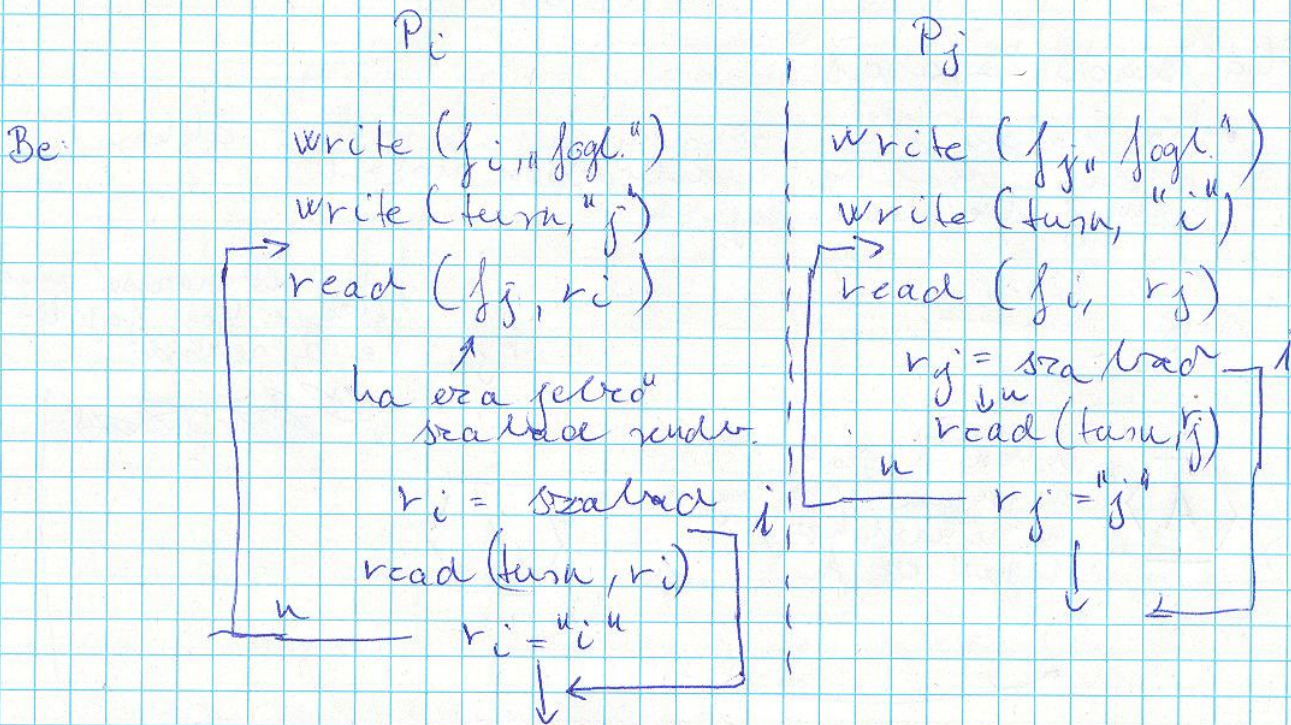 Pi
Be: write (fi, „fogl.")
write (turn, "j")
read (fj, ri)
ha ez a
szabad
ri = szabad i
read (turn, ri)
n ri = "i"
Pj
write (fj, „fogl.")
write (turn, "i")
read (fi, rj)
rj = szabad i
n
read (turn, rj)
n rj = "j"